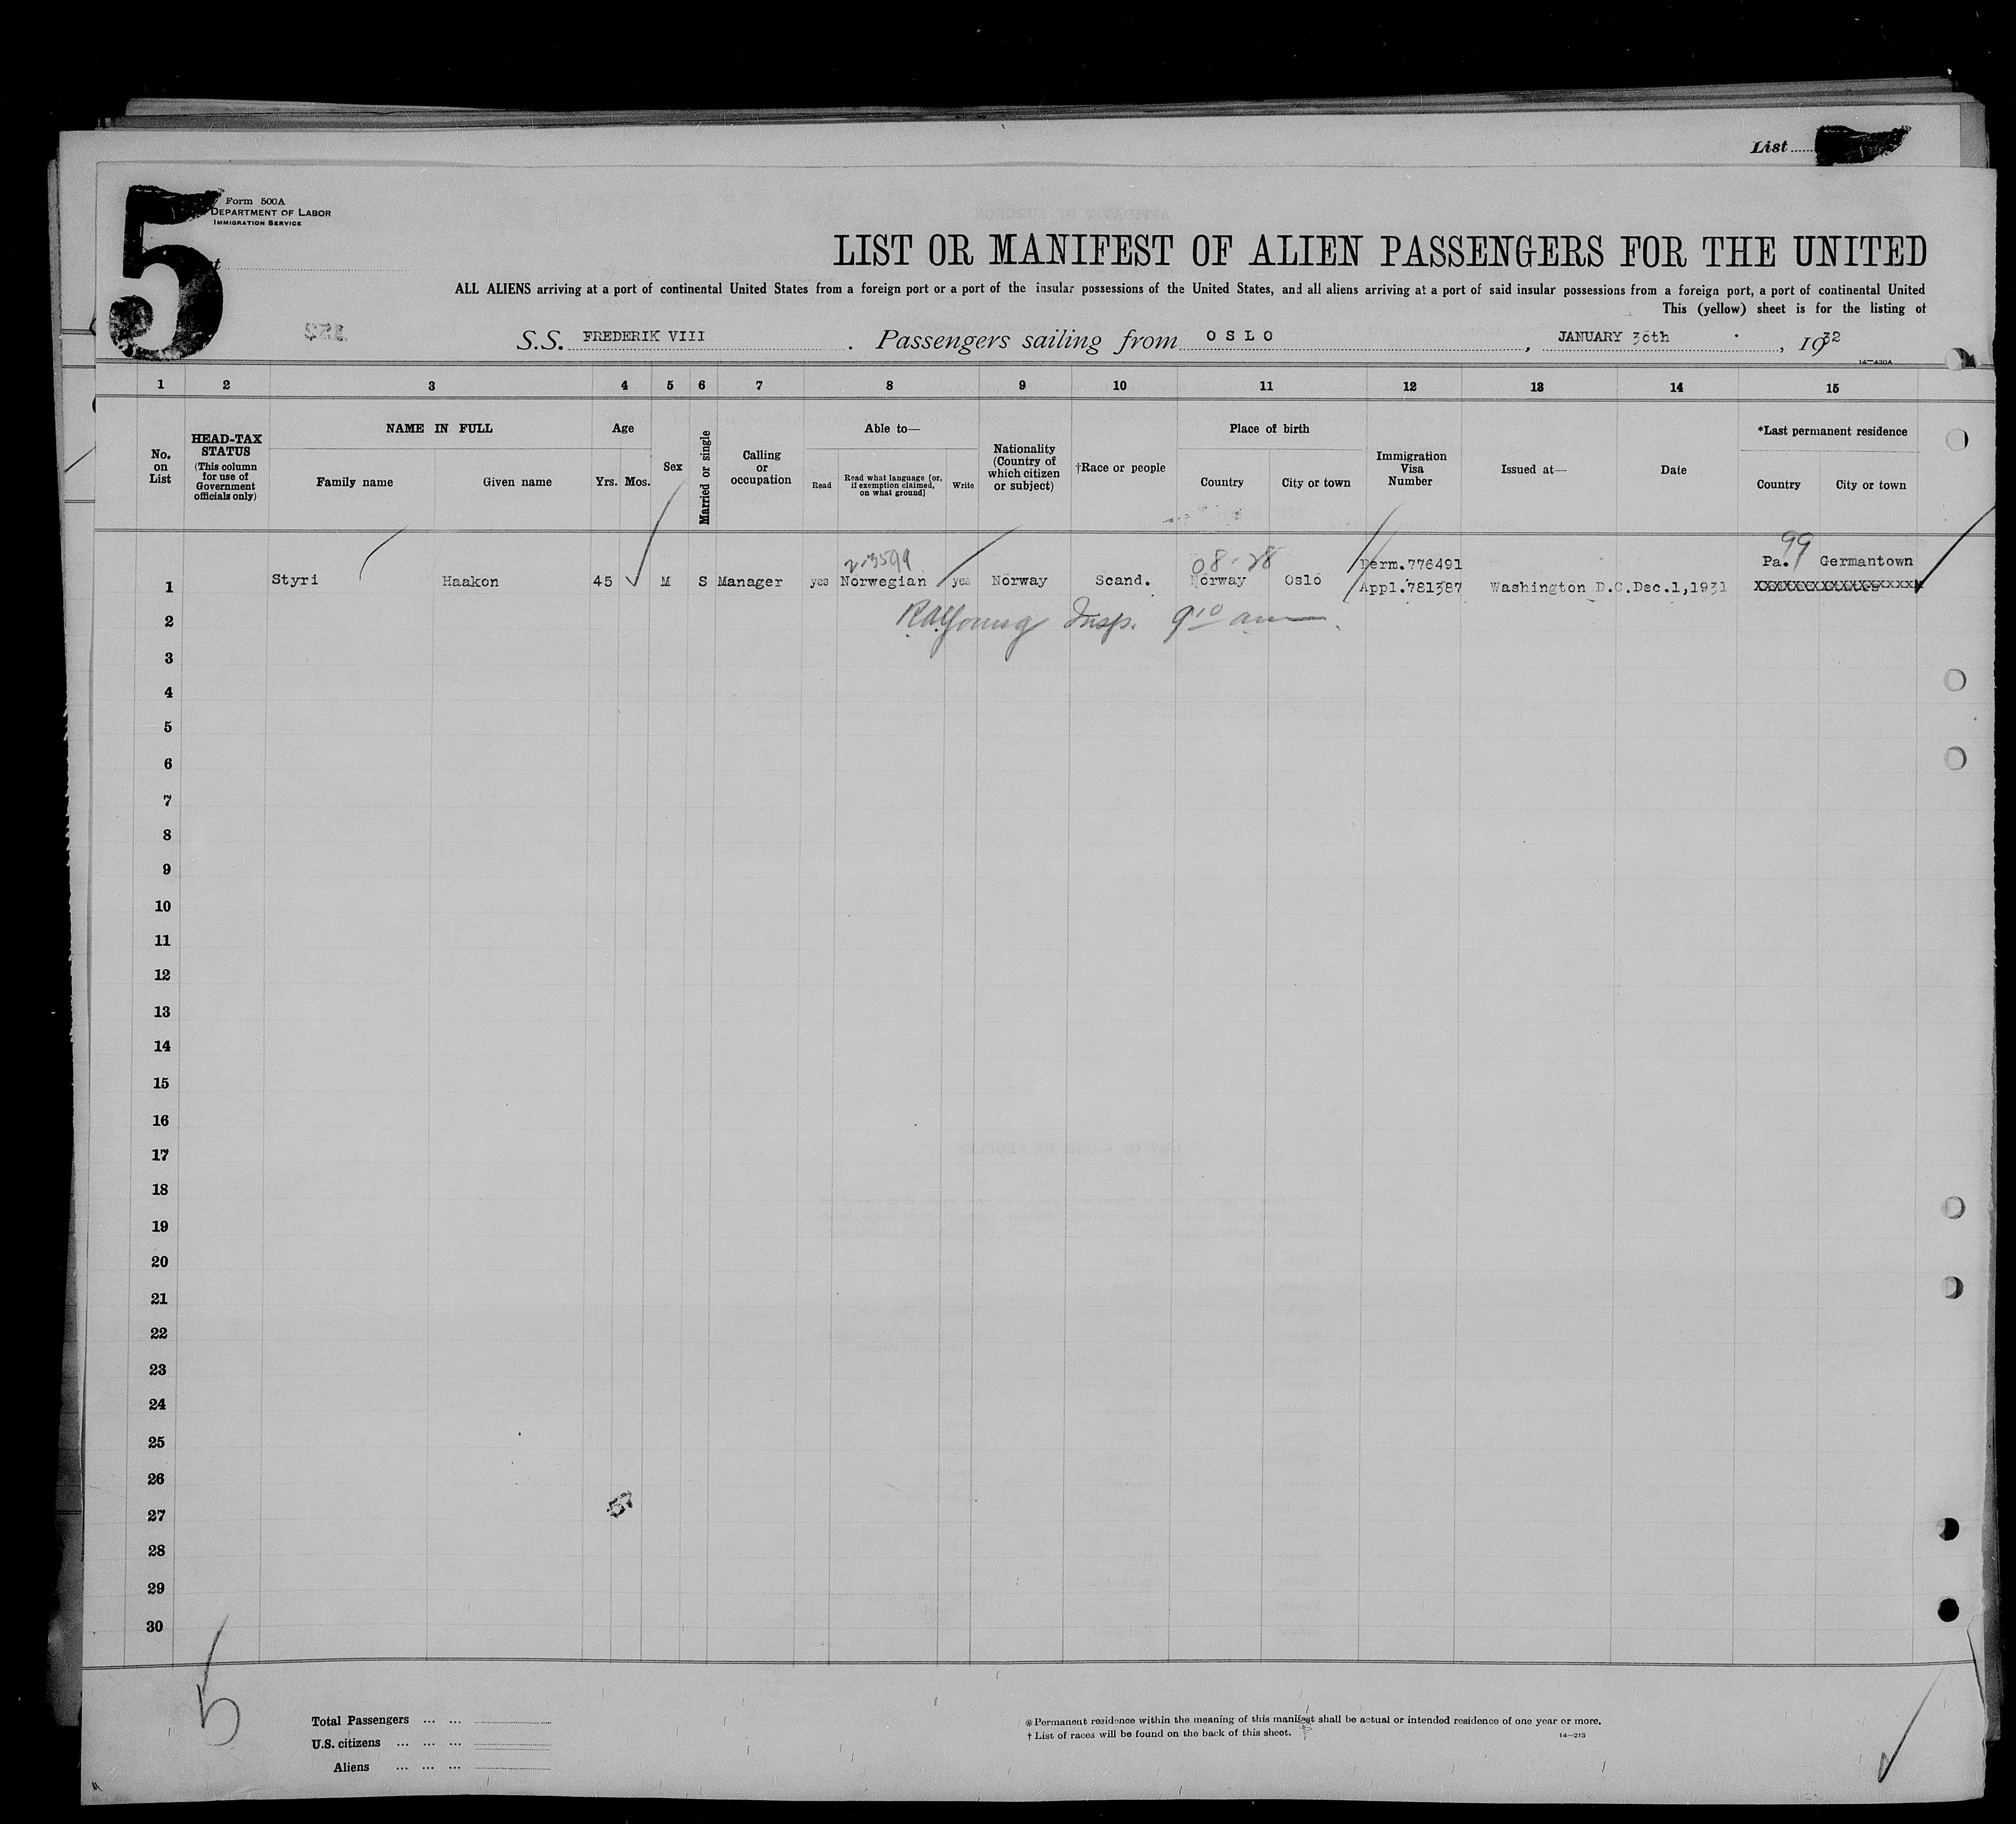 List
5
Form 500A
DEPARTMENT OF LABOR
IMMIGRATION SERVICE
LIST OR MANIFEST OF ALIEN PASSENGERS FOR THE UNITED
ALL ALIENS arriving at a port of continental United States from a foreign port or a port of the insular possessions of the United States, and all aliens arriving at a port of said insular possessions from a foreign port, a port of continental United
This (yellow) sheet is for the listing of
S.S. FREDERIK VIII . Passengers sailing from OSLO , JANUARY 30th , 1932
14—430A
1 2 3 4 5 6 7 8 9 10 11 12 13 14 15
No. on List
HEAD-TAX STATUS (This column for use of Government officials only)
NAME IN FULL
Family name
Given name
Age
Yrs. Mos.
Sex
Married or single
Calling or occupation
Able to—
Read
Read what language [or, if exemption claimed, on what ground]
Write
Nationality (Country of which citizen or subject)
†Race or people
Place of birth
Country
City or town
Immigration Visa Number
Issued at—
Date
*Last permanent residence
Country
City or town
2-3599 08-28 Perm.776491 Pa. 99 Germantown
1 Styri Haakon 45 M S Manager yes Norwegian yes Norway Scand. Norway Oslo Appl.781387 Washington D.C. Dec.1,1931
2 Young Insp. 9 10 am
3
4
5
6
7
8
9
10
11
12
13
14
15
16
17
18
19
20
21
22
23
24
25
26
27 57
28
29
30
5
Total Passengers ... ...
U.S. citizens ... ... ...
Aliens ... ... ...
*Permanent residence within the meaning of this manifest shall be actual or intended residence of one year or more.
† List of races will be found on the back of this sheet.
14—213